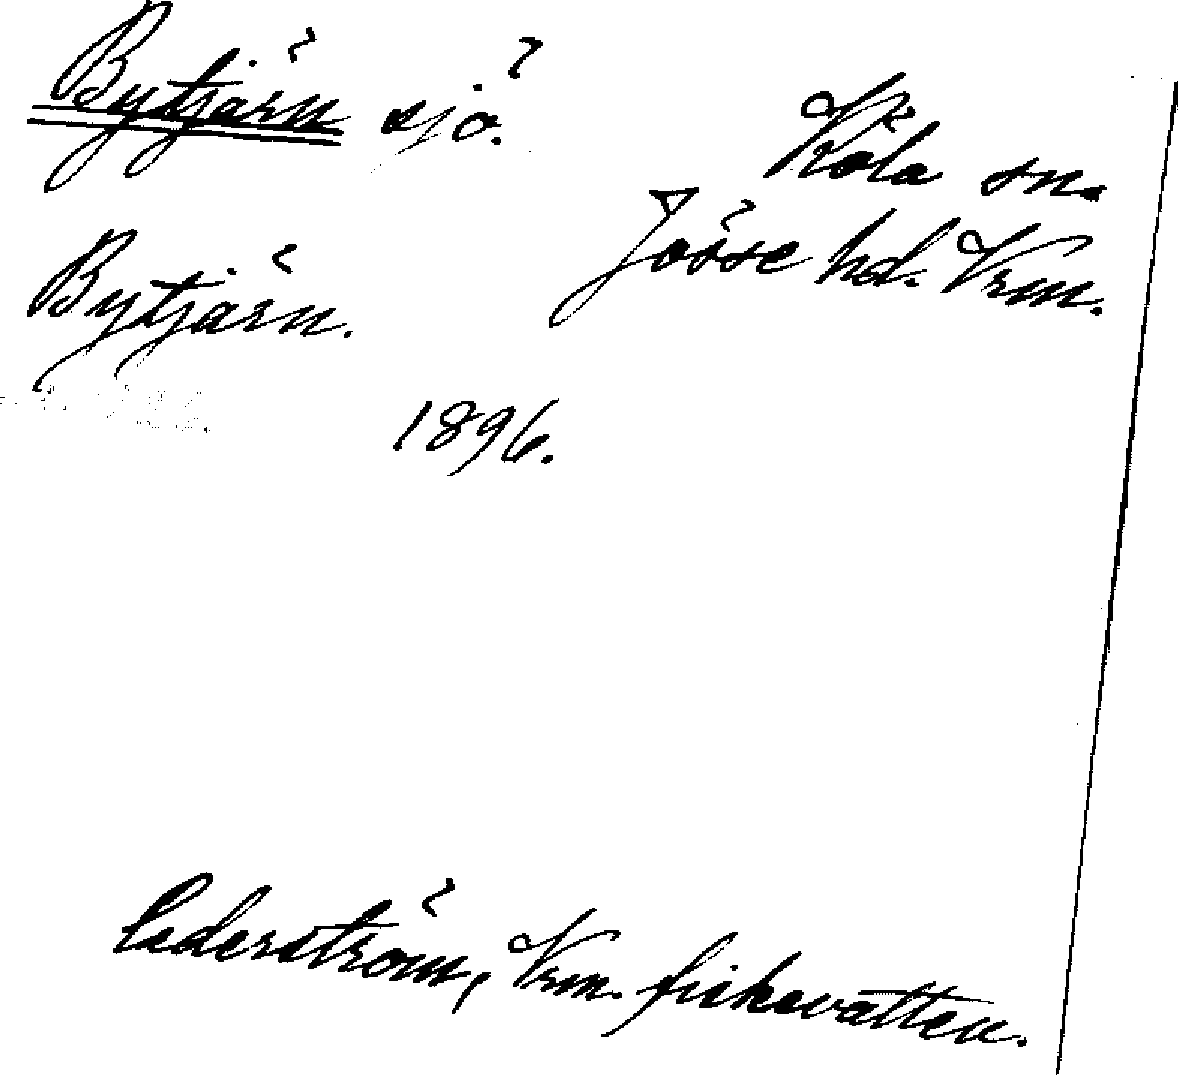 Bytjärn sjö.
Köla sn.
Jösse hd. Vrm.
Bytjärn.
1896.
Cederström, Vrm. fiskevatten.